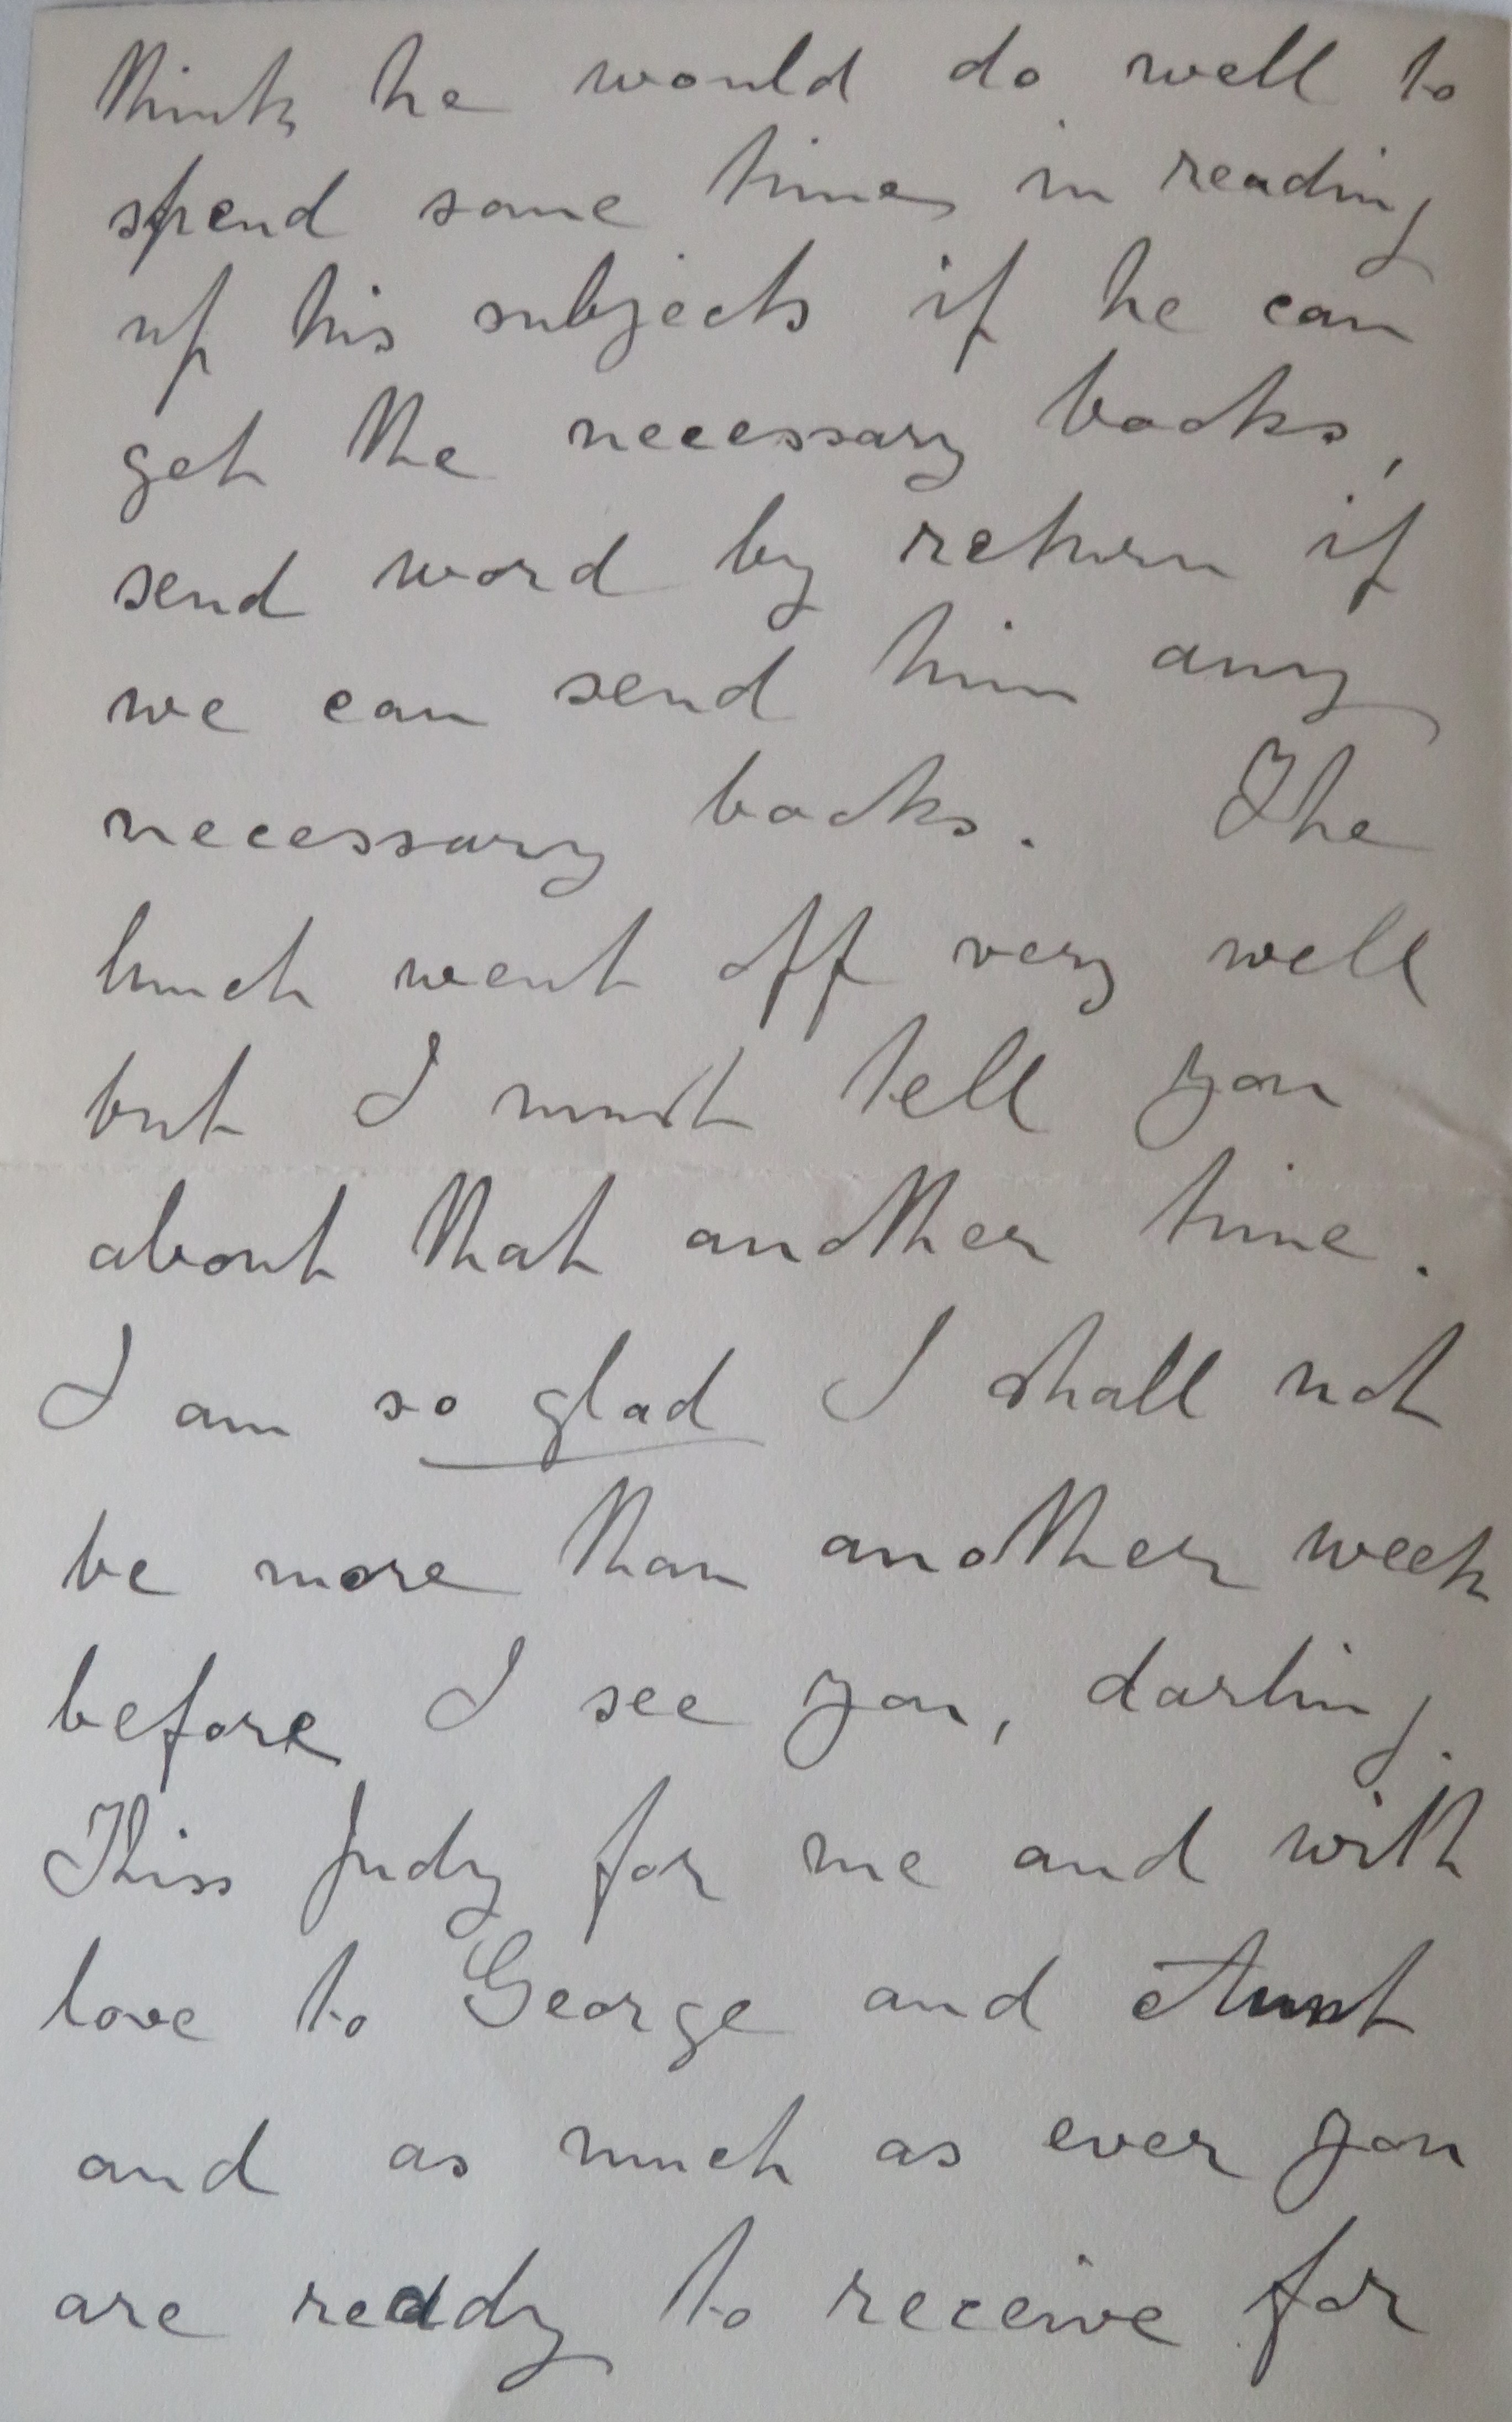 think he would do well to
spend some time in reading
up his subjects if he can
get the necessary books,
send word by return if
we can send him any
necessary books. The
lunch went off very well
but I must tell you
about that another time.
I am so glad I shall not
be more than another week
before I see you, darling.
Kiss Judy for me and with
love to George and Aunt
and as much as ever you
are ready to receive for